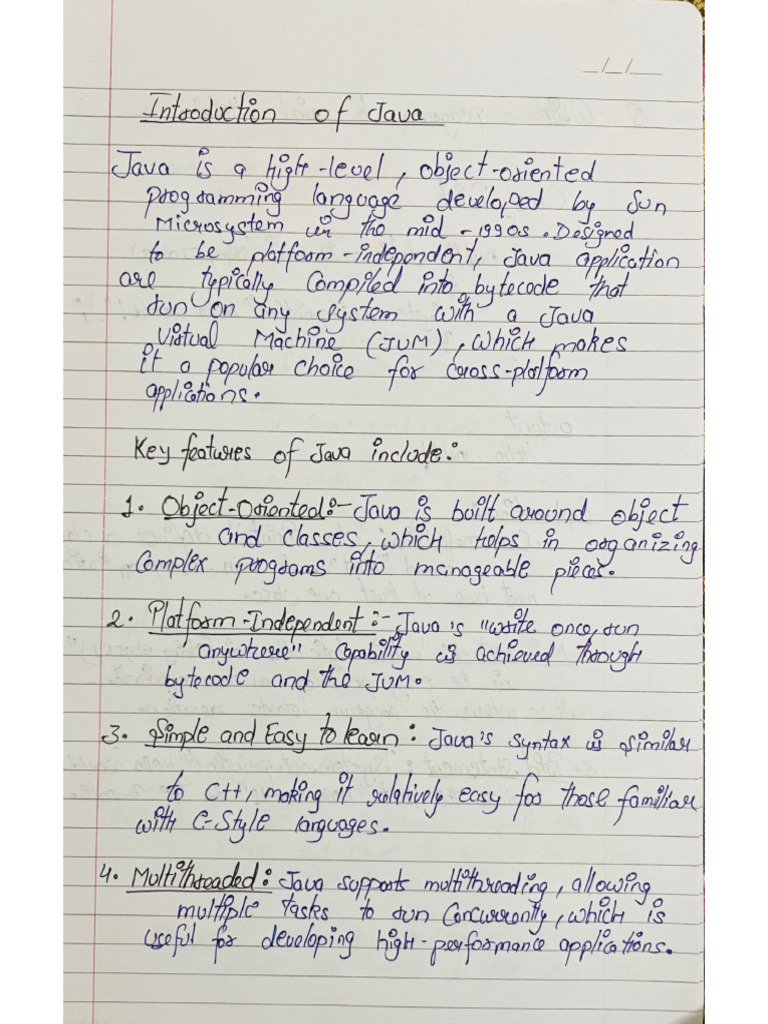 _/_/__
Introduction of Java
Java is a high-level, object-oriented
programming language developed by Sun
Microsystem in the mid-1990s. Designed
to be platform-independent, Java application
are typically compiled into bytecode that
run on any system with a Java
Virtual Machine (JVM), which makes
it a popular choice for cross-platform
applications.
Key features of Java include:
1. Object-Oriented:- Java is built around object
and classes, which helps in organizing
complex programs into manageable pieces.
2. Platform-Independent:- Java's "write once, run
anywhere" capability is achieved through
bytecode and the JVM.
3. Simple and Easy to learn: Java's syntax is similar
to C++, making it relatively easy for those familiar
with C-Style languages.
4. Multithreaded: Java supports multithreading, allowing
multiple tasks to run concurrently, which is
useful for developing high-performance applications.